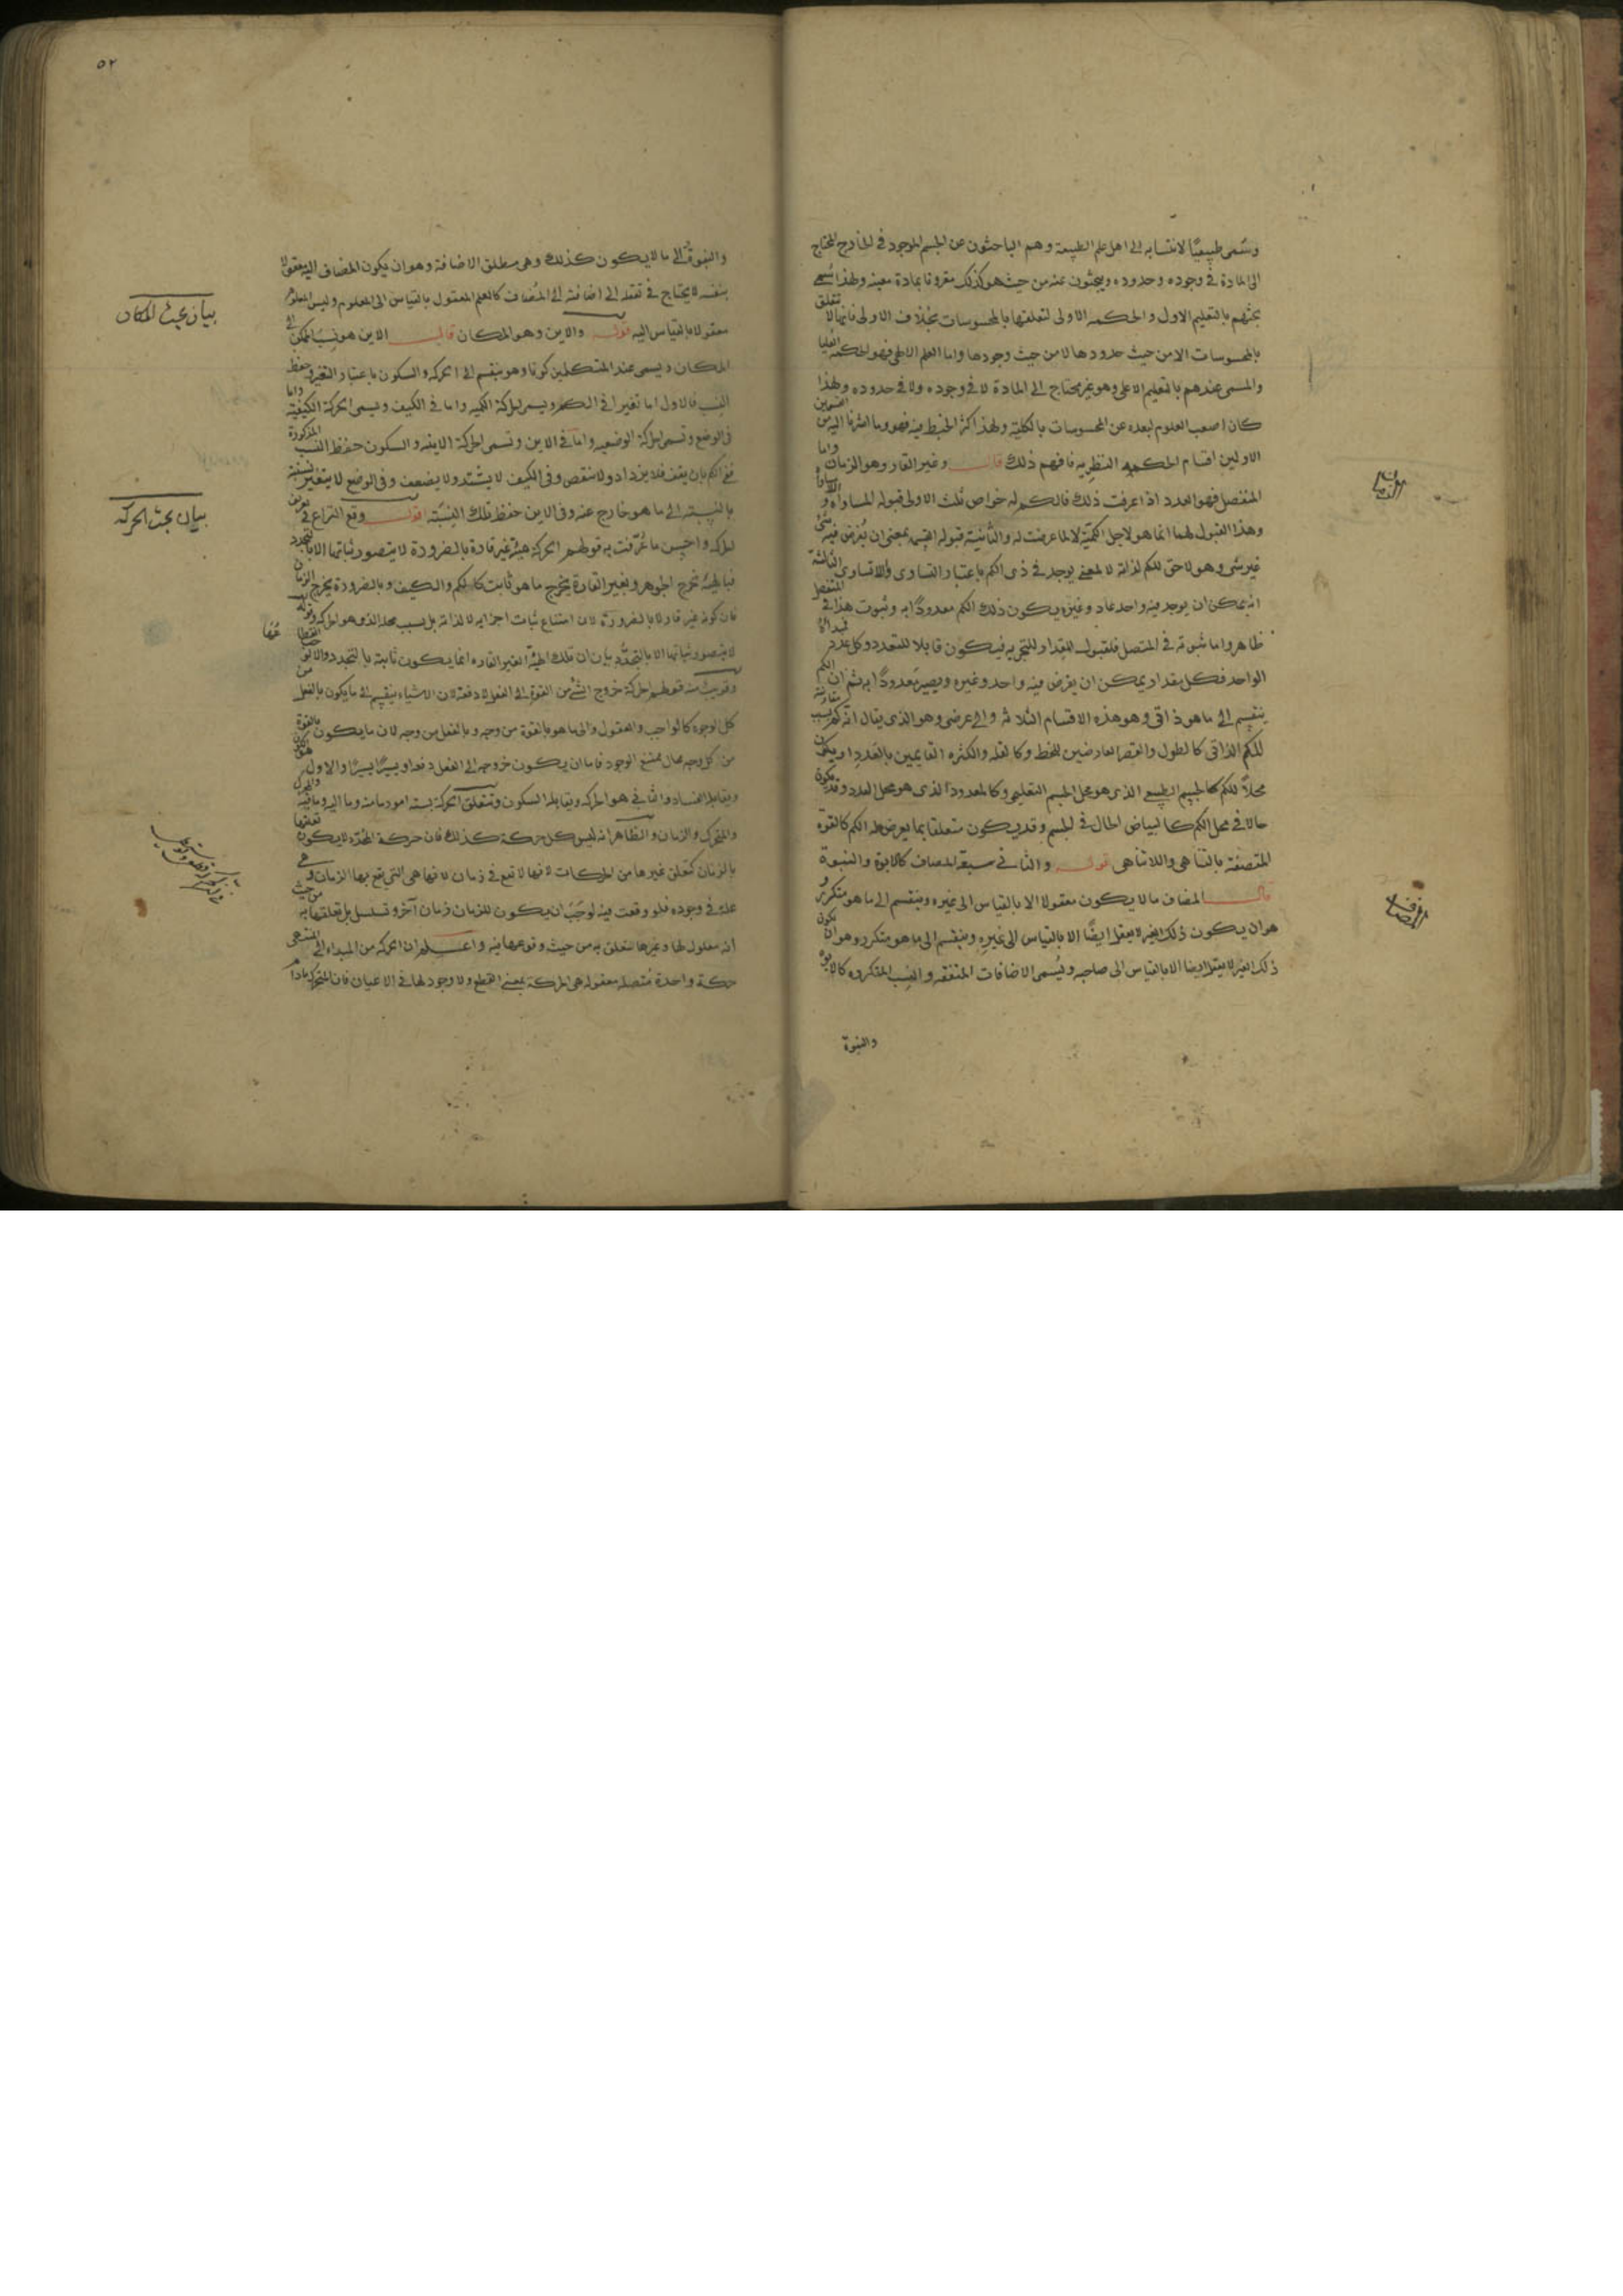 وتسمى طبيعيًّا لانتسابه الى اهل علم الطبيعة وهم الباحثون عن الجسم الموجود في الخارج المحتاج
الى المادة في وجوده وحدوده ويبحثون عنه من حيث هو كذلك مقرونا بمادة معينة ولهذا سمي
بحثهم بالتعليم الاول والحكمة الاولى لتعلقها بالمحسوسات بخلاف الاولى فانها لا تتعلق
بالمحسوسات الا من حيث حدودها لا من حيث وجودها واما العلم الالهي فهو الحكمة العليا
والمسمى عندهم بالتعليم الاعلى وهو غير محتاج الى المادة لا في وجوده ولا في حدوده ولهذا
كان اصعب العلوم لبعده عن المحسوسات بالكلية ولهذا كثر الخبط فيه فهو وما اشرنا اليه من القسمين
الاولين اقسام الحكمة النظرية فافهم ذلك قال وغير القار وهو الزمان واما
المنفصل فهو العدد اذا عرفت ذلك فالكم له خواص ثلث الاولى قبوله المساواة و
وهذا القبول لهما انما هو لاجل الكمية لا لما عرضت له والثانية قبوله القسمة بمعنى ان يفرض فيه شئ
غير شئ وهو لاحق للكم لذاته لا لمعنى يوجد في ذى الكم باعتبار التساوى والاتساوى الثالثة
انه يمكن ان يوجد فيه واحد عاد وغيره يكون ذلك الكم معدودًا به وثبوت هذا في المنفصل
ظاهر واما ثبوته في المتصل فلقبول المقدار للتجزيه فيكون قابلا للتعدد وكل عدد
الواحد فكل مقدار يمكن ان يفرض فيه واحد وغيره ويصير معدودًا به ثم ان الكم
ينقسم الى ما هو ذاتى وهو هذه الاقسام الثلاثة والى عرضى وهو الذى يقال انه كم بسبب
للكم الذاتى كالطول والقصر العارضين للخط وكالقلة والكثرة القايمين بالعدد او يكون
محلاً للكم كالجسم الطبيعى الذى هو محل الجسم التعليمى وكالمعدود الذى هو محل العدد وقد يكون
حالا في محل الكم كالبياض الحال في الجسم وقد يكون متعلقا بما يعرض له الكم كالقوة
المتصفة بالتناهى واللاتناهى قوله والثانى سبعة المضاف كالابوة والنبوة
قال المضاف ما لا يكون معقولا الا بالقياس الى غيره وينقسم الى ما هو متكرر و
هو ان يكون ذلك الغير لا يعقل ايضًا الا بالقياس الى غيره وينقسم الى ما هو متكرر وهو ان يكون
ذلك الغير لا يعقل ايضا الا بالقياس الى صاحبه ويُسمى الاضافات المتفقة والنسب المتكررة كالابوة
والنبوة
الزمان
المضاف
٥٢
والنبوة الى ما لا يكون كذلك وهى مطلق الاضافة وهو ان يكون المضاف اليه معقولا
بنفسه لا يحتاج في تعقله الى اضافته الى المضاف كالعلم المعقول بالقياس الى المعلوم وليس المعلوم
معقولا بالقياس اليه قوله والاين وهو المكان قال الاين هو نسبة المتمكن الى
المكان ويسمى عند المتكلمين كونا وهو ينقسم الى الحركة والسكون باعتبار التغير وحفظ
النسب فالاول اما تغير في الكم ويسمى الحركة الكمية واما في الكيف ويسمى الحركة الكيفية واما
في الوضع وتسمى الحركة الوضعية واما في الاين وتسمى الحركة الاينية والسكون حفظ النسب المذكورة
ففى الكم بان يقف فلا يزداد ولا ينقص وفى الكيف لا يشتد ولا يضعف وفى الوضع لا يتغير نسبته
بالنسبة الى ما هو خارج عنه وفى الاين حفظ تلك النسبة قوله وقع النزاع في تعريف
الحركة واحسن ما عُرّفت به قولهم الحركة هيئة غير قارة بالضرورة لا يتصور ثباتها الا بالتجدد
فبالهيئة تخرج الجوهر وبغير القارة يخرج ما هو ثابت كالكم والكيف وبالضرورة يخرج الزمان
فان كونه غير قار لا بالضرورة لان امتناع ثبات اجزايه لا لذاته بل بسبب محله الذى هو الحركة وقوله
لا يتصور ثباتها الا بالتجدّد بيان ان تلك الهيئة الغير القارة انما يكون ثابتة بالتجدد والانقضا
وقريب منه قولهم الحركة خروج الشئ من القوة الى الفعل لا دفعة لان الاشياء ينقسم الى ما يكون بالفعل من
كل الوجوه كالواجب والعقول والى ما هو بالقوة من وجه وبالفعل من وجه لان ما يكون بالقوة
من كل وجه محال ممتنع الوجود فاما ان يكون خروجه الى الفعل دفعة او يسيرًا يسيرًا والاول هو الكون
ويقابله الفساد والثانى هو الحركة ويقابله السكون وتتعلق الحركة بستة امور ما منه وما اليه وما فيه والمحرك
والمتحرك والزمان والظاهر انه ليس كل حركة كذلك فان حركة المحدد لا يكون تعلقها
بالزمان كتعلق غيرها من الحركات لانها لا تقع في زمان لانها هى التى يقع بها الزمان وهى
علة في وجوده فلو وقعت فيه لوجب ان يكون للزمان زمان آخر وتسلسل بل تعلقها به من حيث
انه معلول لها وغيرها متعلق به من حيث وقوعها فيه واعلم ان الحركة من المبداء الى المنتهى
حركة واحدة متصلة معقولة هى الحركة بمعنى القطع ولا وجود لها في الاعيان فان المتحرك مادام
بيان بحث المكان
بيان بحث الحركة